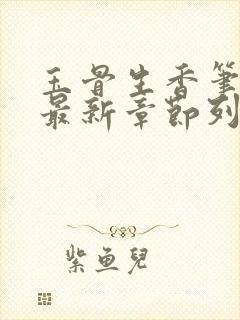 玉骨生香筆
最新章節列
紫魚兒